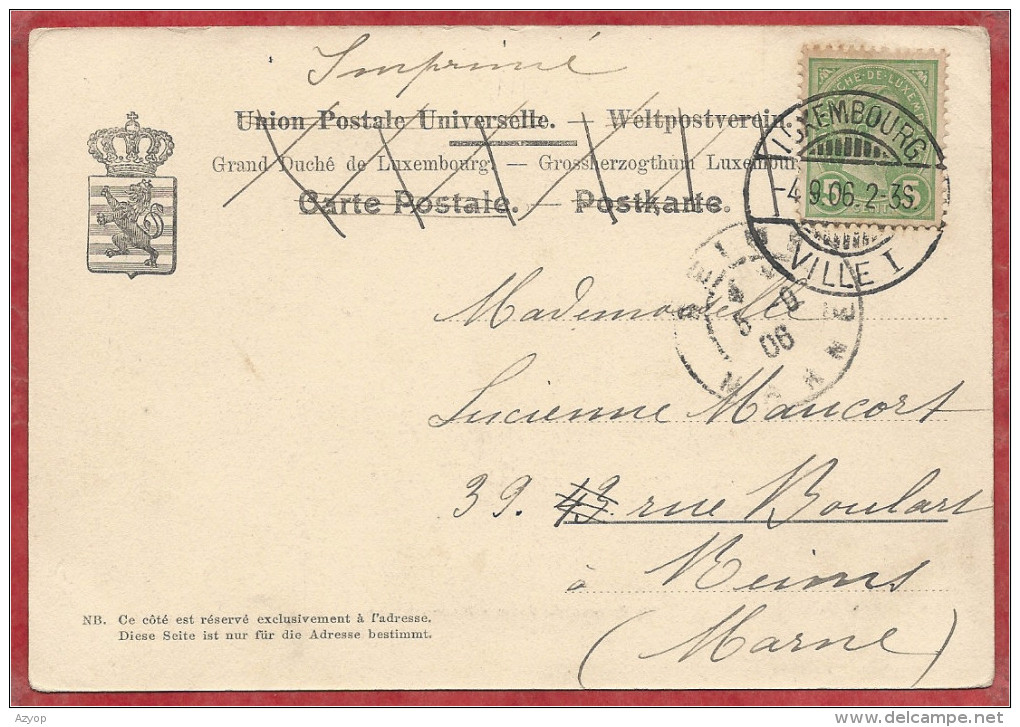 Imprimé
Union Postale Universelle. — Weltpostverein
Grand Duché de Luxembourg. — Grossherzogthum Luxembur
Carte Postale. — Postkarte.
CHÉ-DE-LUXEM
5
LUXEMBOURG
-4.9.06.2-3S
VILLE I
REIMS
5 -9
06
MARNE
Mademoiselle
Lucienne Maucort
39. 43. rue Boulart
à Reims
(Marne)
NB. Ce côté est réservé exclusivement à l'adresse.
Diese Seite ist nur für die Adresse bestimmt.
Azyop
delcampe.net